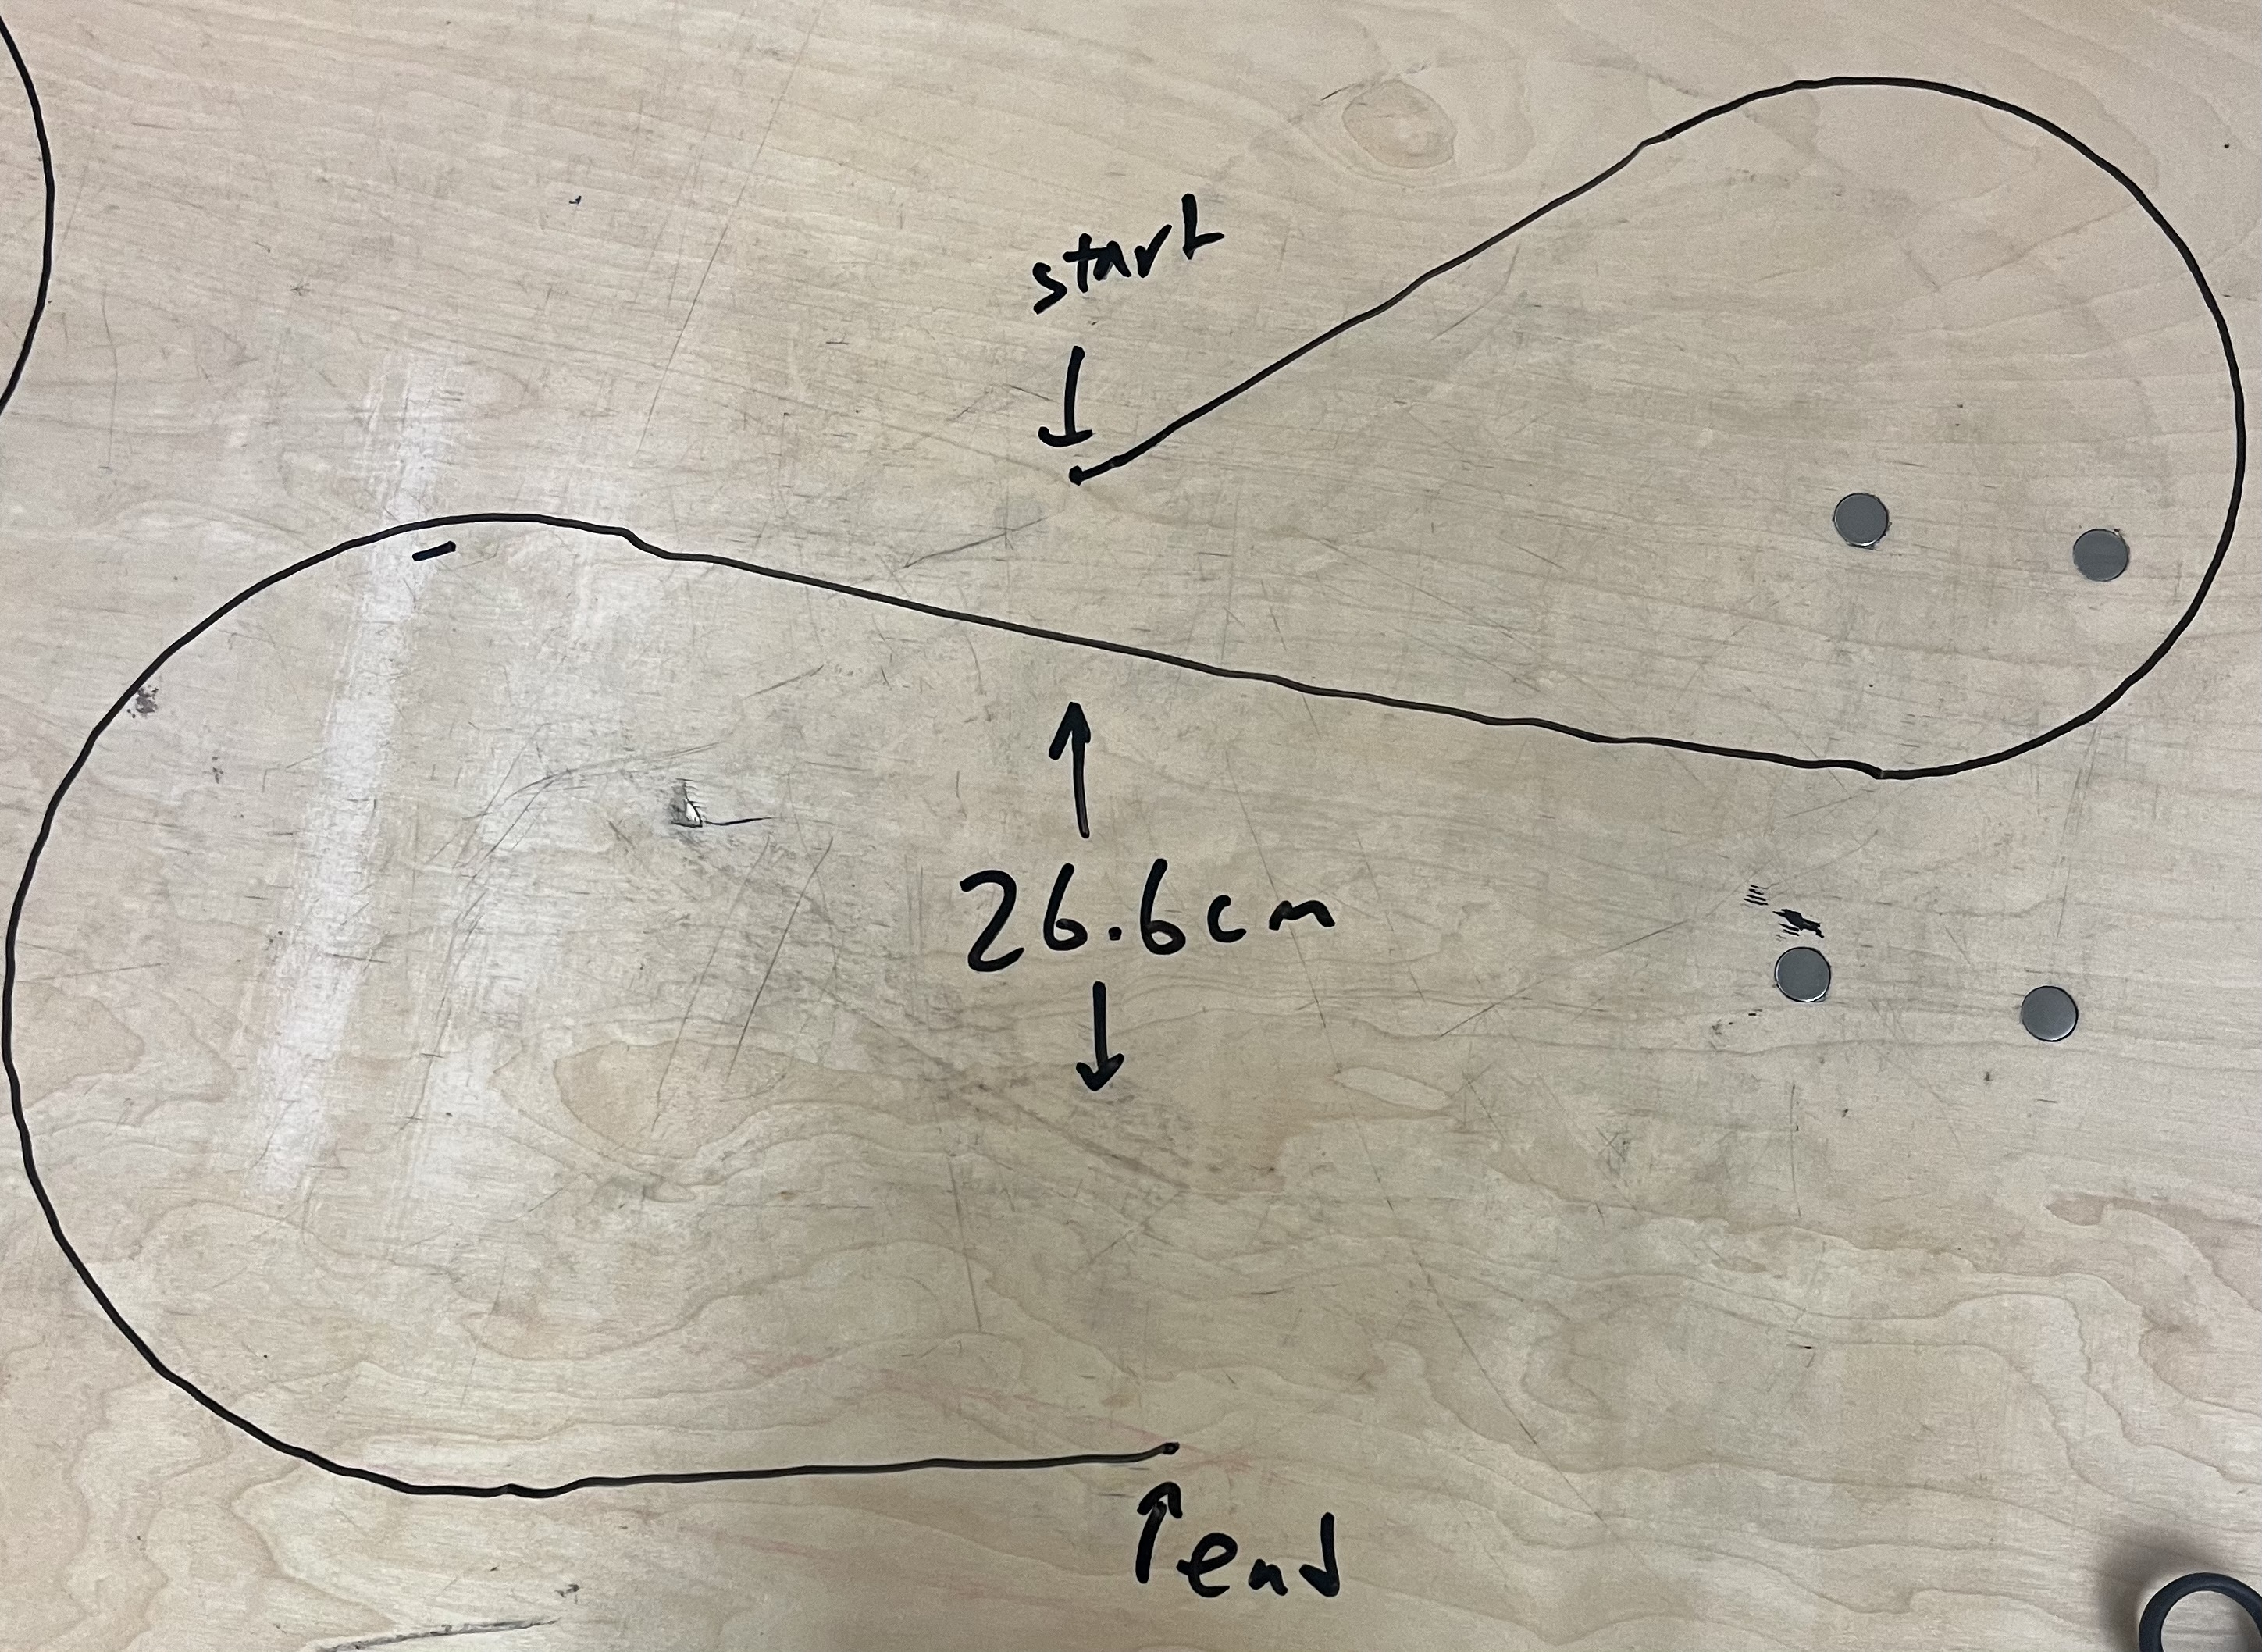 start
26.6cm
end